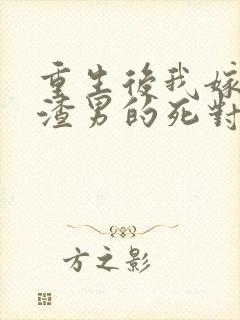 重生後我嫁
渣男的死對
方之影